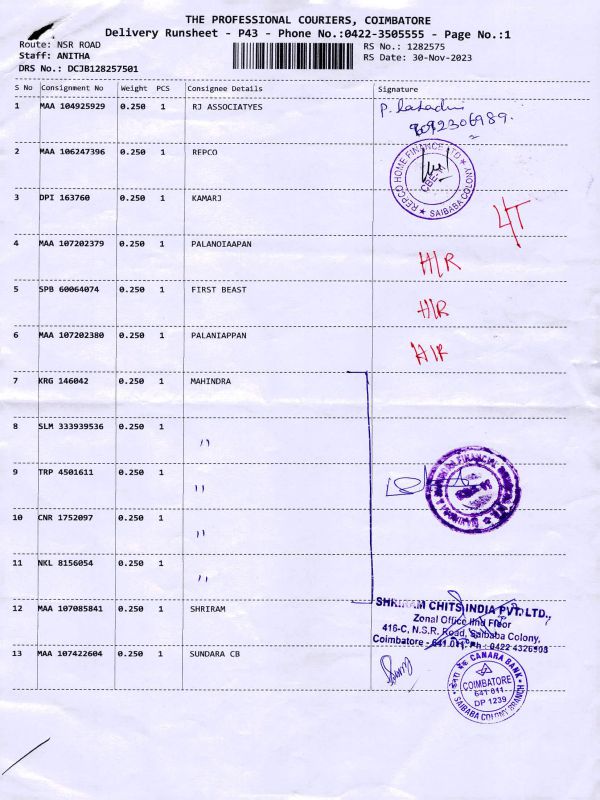 THE PROFESSIONAL COURIERS, COIMBATORE
Delivery Runsheet - P43 - Phone No.:0422-3505555 - Page No.:1
Route: NSR ROAD RS No.: 1282575
Staff: ANITHA RS Date: 30-Nov-2023
DRS No.: DCJB128257501
S No Consignment No Weight PCS Consignee Details Signature
1 MAA 104925929 0.250 1 RJ ASSOCIATYES
9092306989.
2 MAA 106247396 0.250 1 REPCO
REPCO HOME FINANCE LTD ★ SAIBABA COLONY ★
3 DPI 163760 0.250 1 KAMARJ
4 MAA 107202379 0.250 1 PALANOIAAPAN H/R
5 SPB 60064074 0.250 1 FIRST BEAST H/R
6 MAA 107202380 0.250 1 PALANIAPPAN H/R
7 KRG 146042 0.250 1 MAHINDRA
8 SLM 333939536 0.250 1 ''
9 TRP 4501611 0.250 1 ''
10 CNR 1752097 0.250 1 ''
11 NKL 8156054 0.250 1 ''
12 MAA 107085841 0.250 1 SHRIRAM
SHRIRAM CHITS INDIA PVT. LTD.,
Zonal Office IInd Floor
416-C, N.S.R. Road, Saibaba Colony,
Coimbatore - 641 011. Ph : 0422 4326503
13 MAA 107422604 0.250 1 SUNDARA CB
केनरा बैंक CANARA BANK
COIMBATORE
641 011
DP 1239
SAIBABA COLONY BRANCH